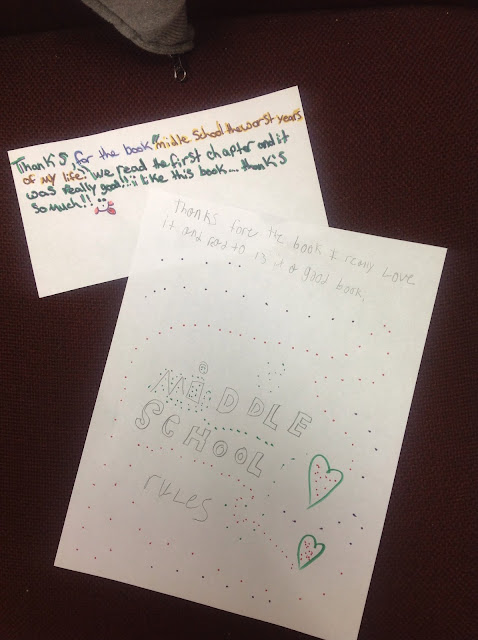 Thank's, for the book "midle school the worst years
of my life." we read the first chapter and it
was really good!!! i like this book... thank's
so much!!
Thanks fore the book I really Love
it and read to 13 it a good book.
MiDDLE
SCHOOL
rules